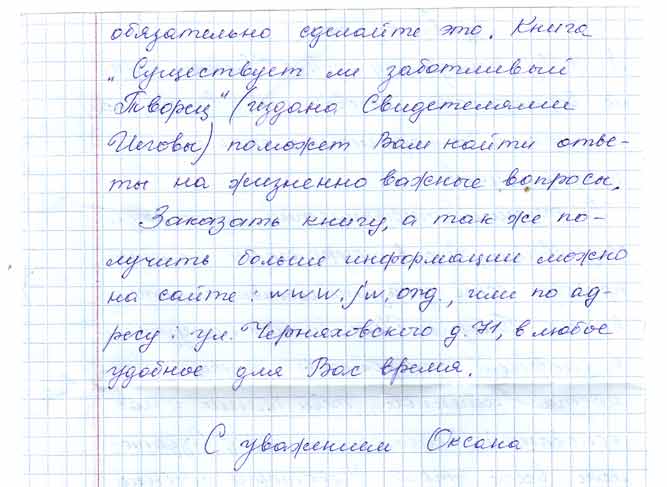 обязательно сделайте это. Книга
„Существует ли заботливый
Творец" (издана Свидетелями
Иеговы) поможет Вам найти отве-
ты на жизненно важные вопросы.
Заказать книгу, а так же по-
лучить больше информации можно
на сайте: www.jw.org., или по ад-
ресу: ул. Черняховского д. 71, в любое
удобное для Вас время.
С уважением Оксана